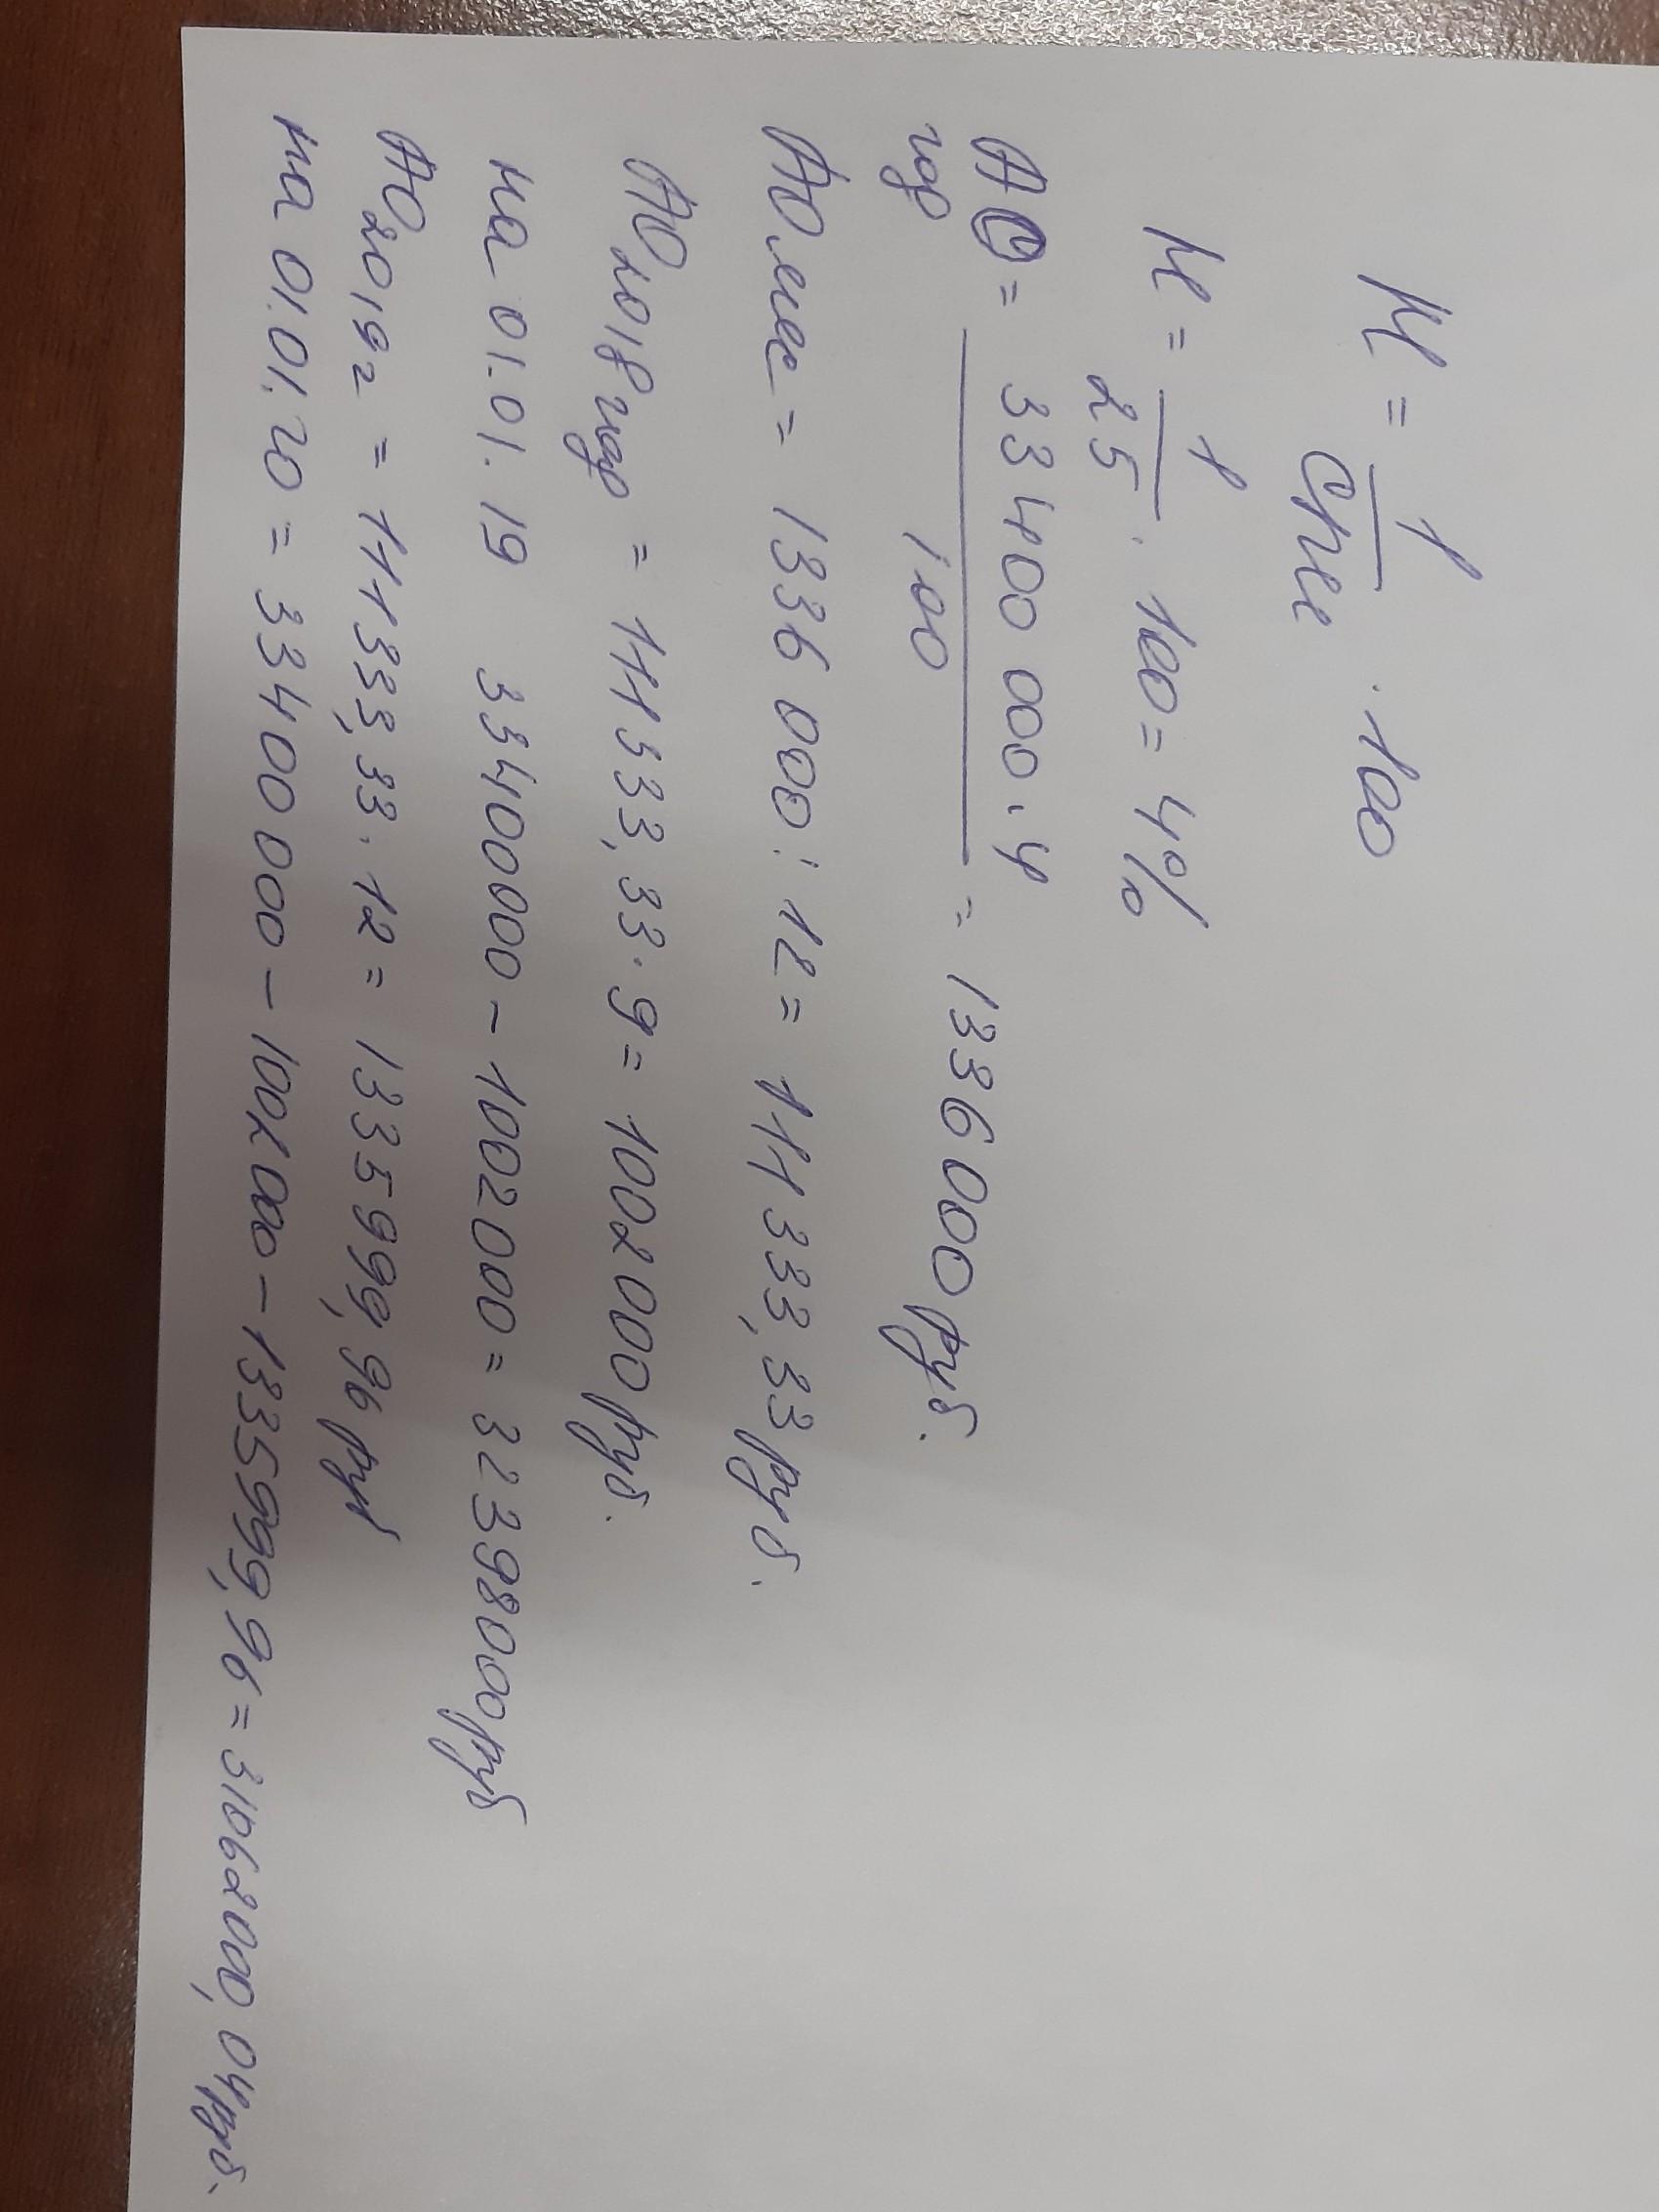 К = 1/СПИ · 100
К = 1/25 · 100 = 4%
АО год = 33 400 000 · 4 / 100 = 1336 000 руб.
АО мес = 1336 000 : 12 = 111 333,33 руб.
АО 2018 год = 111333,33 · 9 = 1002000 руб.
на 01.01.19 33400000 – 1002000 = 32398000 руб
АО 2019г = 111333,33 · 12 = 1335999,96 руб
на 01.01.20 = 33400 000 – 1002000 – 1335999,96 = 31062000,04 руб.